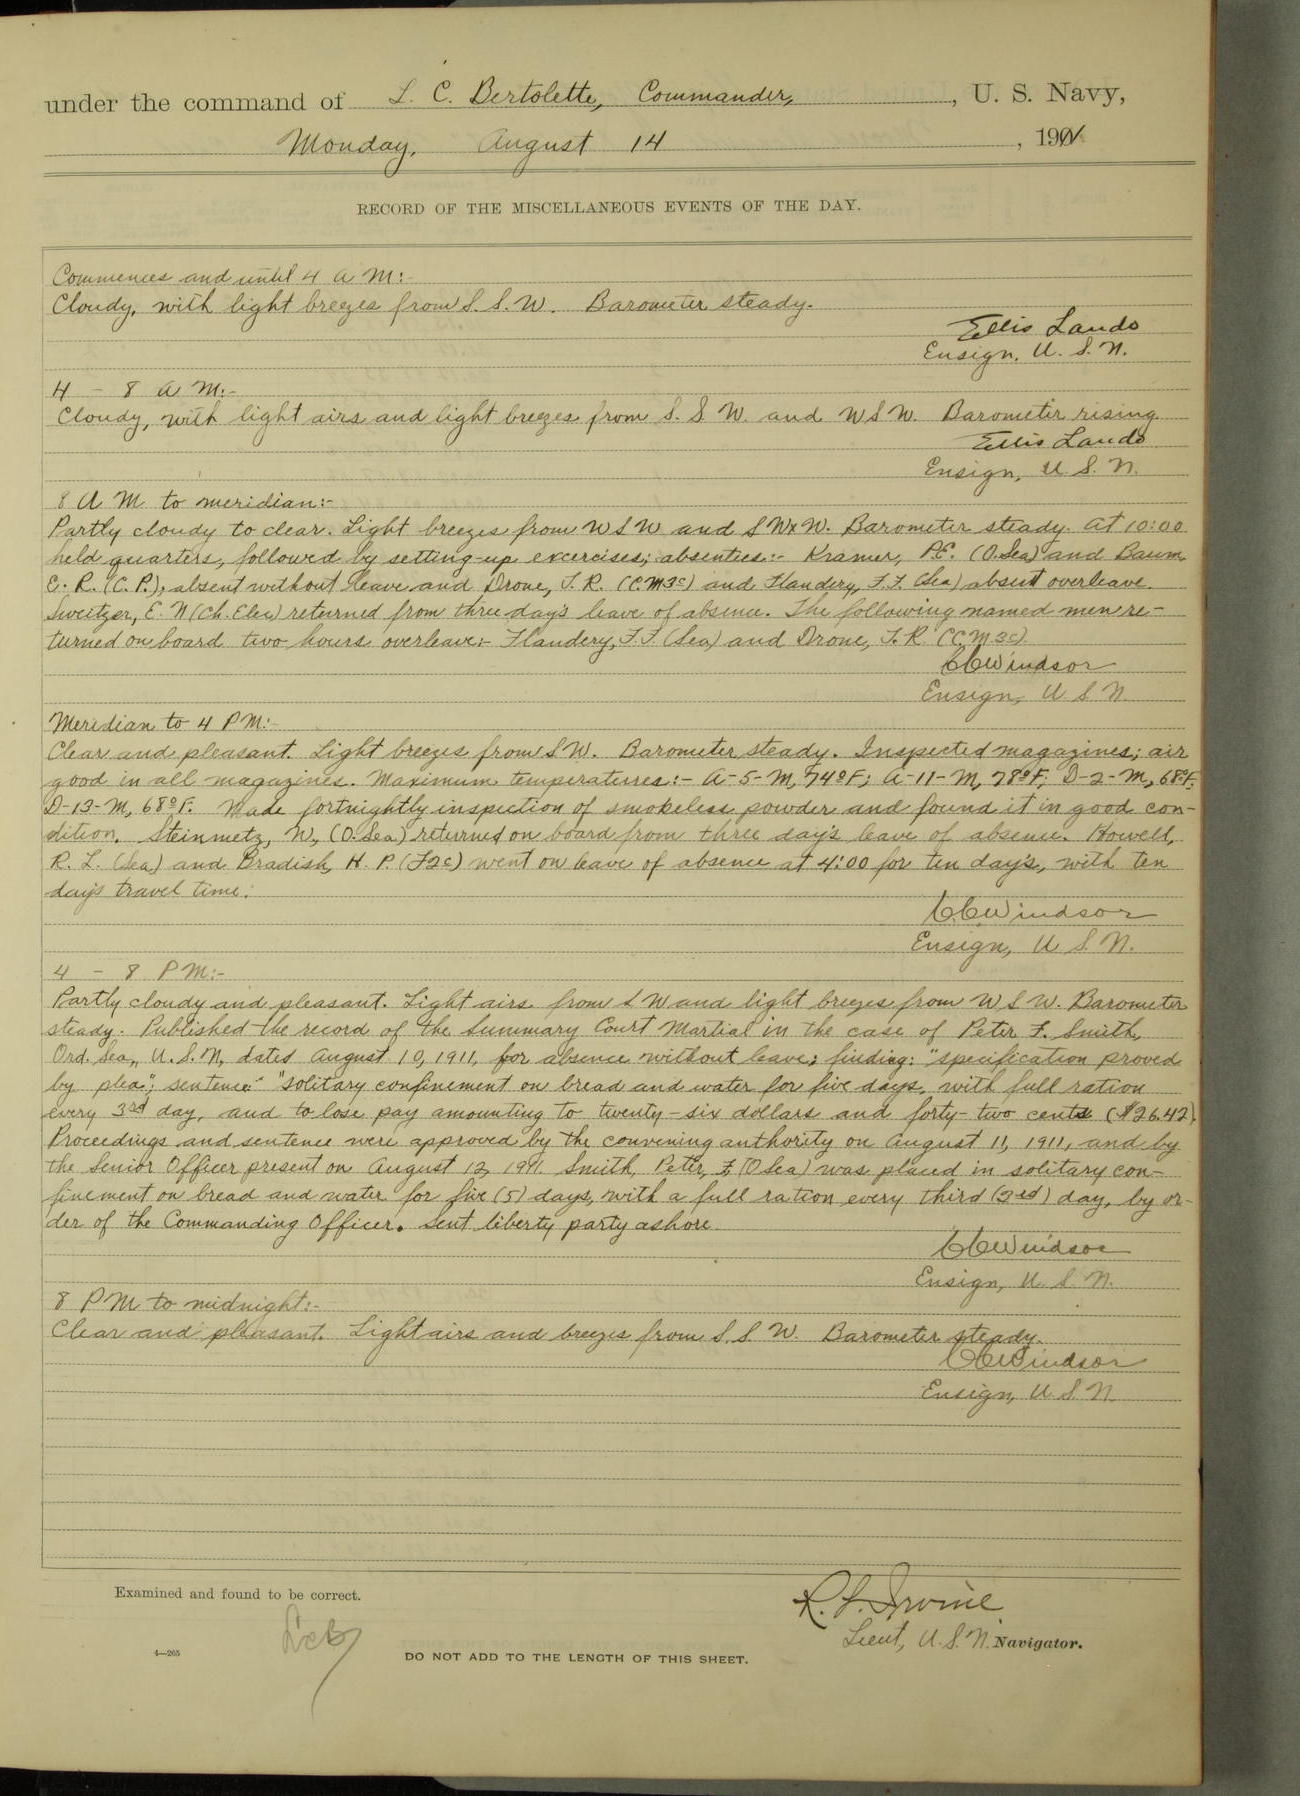 under the command of L. C. Bertolette, Commander, , U. S. Navy,
Monday, August 14 , 1911
RECORD OF THE MISCELLANEOUS EVENTS OF THE DAY.
Commences and until 4 A M:-
Cloudy, with light breezes from S. S. W. Barometer steady.
Ellis Lando
Ensign, U. S. N.
4 - 8 A M:-
Cloudy, with light airs and light breezes from S. S. W. and W S W. Barometer rising.
Ellis Lando
Ensign, U. S. N.
8 A M to meridian:-
Partly cloudy to clear. Light breezes from W S W and S W x W. Barometer steady. At 10:00
held quarters, followed by setting-up excercises; absentees:- Kramer, P.E. (O.Sea) and Baum,
E. R. (C. P.), absent without leave and Drone, T. R. (C.M3c) and Flandery, F. F. (Sea) absent overleave.
Sweitzer, E. N (Ch. Elec) returned from three day's leave of absence. The following named men re-
turned on board two hours overleave:- Flandery, F. F. (Sea) and Drone, T. R. (C.M3c).
C C Windsor
Ensign, U S N.
Meridian to 4 P M:-
Clear and pleasant. Light breezes from S W. Barometer steady. Inspected magazines; air
good in all magazines. Maximum temperatures:- A-5-M, 74°F; A-11-M, 78°F; D-2-M, 68°F;
D-13-M, 68°F. Made fortnightly inspection of smokeless powder and found it in good con-
dition. Steinmetz, W, (O.Sea) returned on board from three day's leave of absence. Howell,
R. L. (Sea) and Bradish, H. P. (F2c) went on leave of absence at 4:00 for ten day's, with ten
day's travel time.
C. C. Windsor
Ensign, U. S. N.
4 - 8 P M:-
Partly cloudy and pleasant. Light airs from S W and light breezes from W S W. Barometer
steady. Published the record of the Summary Court Martial in the case of Peter F. Smith,
Ord. Sea., U. S. N, dated August 10, 1911, for absence without leave; finding: "specification proved
by plea"; sentence: "solitary confinement on bread and water for five days, with full ration
every 3rd day, and to lose pay amounting to twenty-six dollars and forty-two cents ($26.42).
Proceedings and sentence were approved by the convening authority on August 11, 1911, and by
the Senior Officer present on August 12, 1911. Smith, Peter, F. (O Sea) was placed in solitary con-
finement on bread and water for five (5) days, with a full ration every third (3rd) day, by or-
der of the Commanding Officer. Sent liberty party ashore.
C C Windsor
Ensign, U. S. N.
8 P M to midnight:-
Clear and pleasant. Light airs and breezes from S. S W. Barometer steady.
C C Windsor
Ensign, U. S. N.
Examined and found to be correct.
LCB
R. L. Irvine
Lieut, U. S. N. Navigator.
4—265
DO NOT ADD TO THE LENGTH OF THIS SHEET.